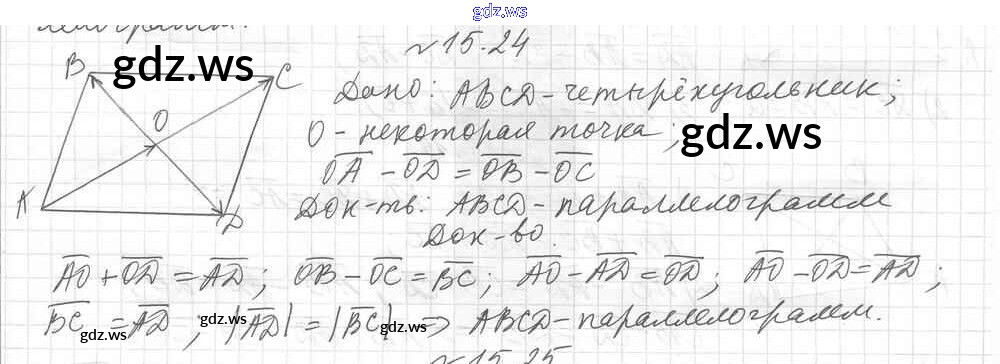 gdz.ws
№15.24
B C O A D
gdz.ws
Дано: ABCD-четырёхугольник;
O - некоторая точка;
gdz.ws
OA - OD = OB - OC
Док-ть: ABCD-параллелограмм
Док-во.
AO + OD = AD; OB - OC = BC; AO - AD = OD; AO - OD = AD;
BC = AD; |AD| = |BC| ⇒ ABCD-параллелограмм.
gdz.ws gdz.ws gdz.ws
№15.25